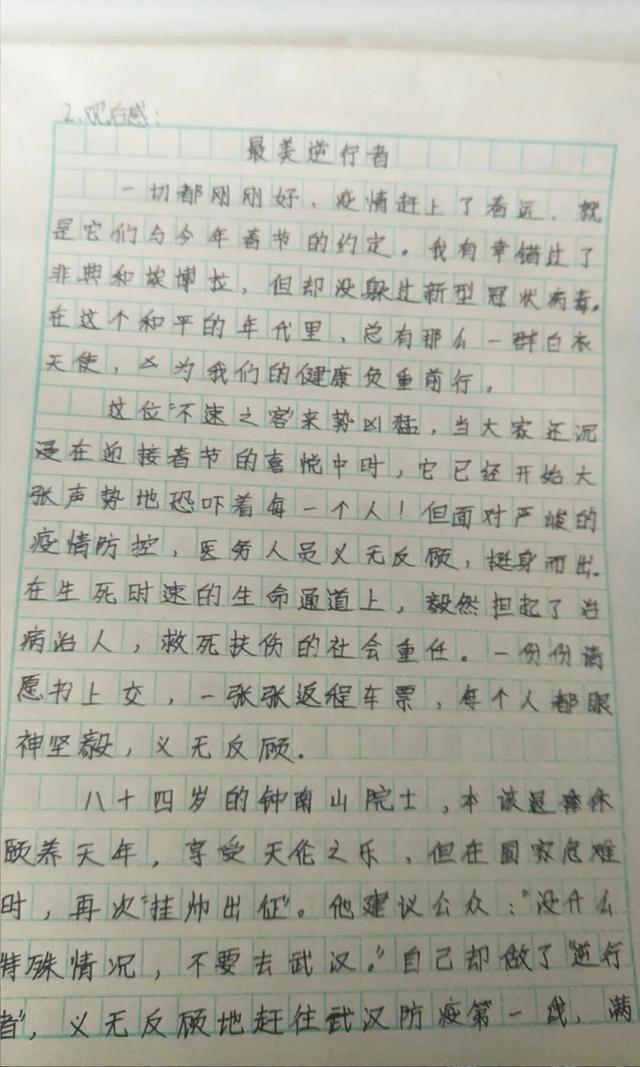 2.观后感：
最美逆行者
一切都刚刚好，疫情赶上了春运，就
是它们与今年春节的约定。我有幸错过了
非典和埃博拉，但却没躲过新型冠状病毒。
在这个和平的年代里，总有那么一群白衣
天使，为我们的健康负重前行。
这位“不速之客”来势凶猛，当大家还沉
浸在迎接春节的喜悦中时，它已经开始大
张声势地恐吓着每一个人！但面对严峻的
疫情防控，医务人员义无反顾，挺身而出。
在生死时速的生命通道上，毅然担起了治
病治人，救死扶伤的社会重任。一份份请
愿书上交，一张张返程车票，每个人都眼
神坚毅，义无反顾。
八十四岁的钟南山院士，本该退休
颐养天年，享受天伦之乐，但在国家危难
时，再次“挂帅出征”。他建议公众：“没什么
特殊情况，不要去武汉。”自己却做了“逆行
者”，义无反顾地赶往武汉防疫第一线，满